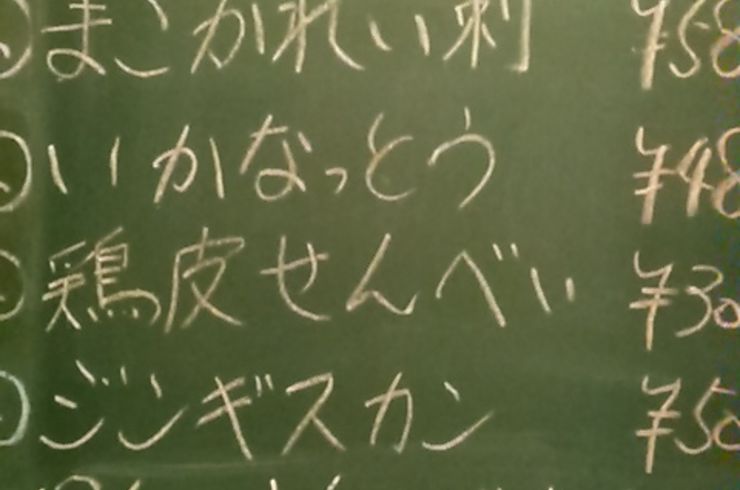 まこがれい刺 ¥58
いかなっとう ¥48
鶏皮せんべい ¥30
ジンギスカン ¥50